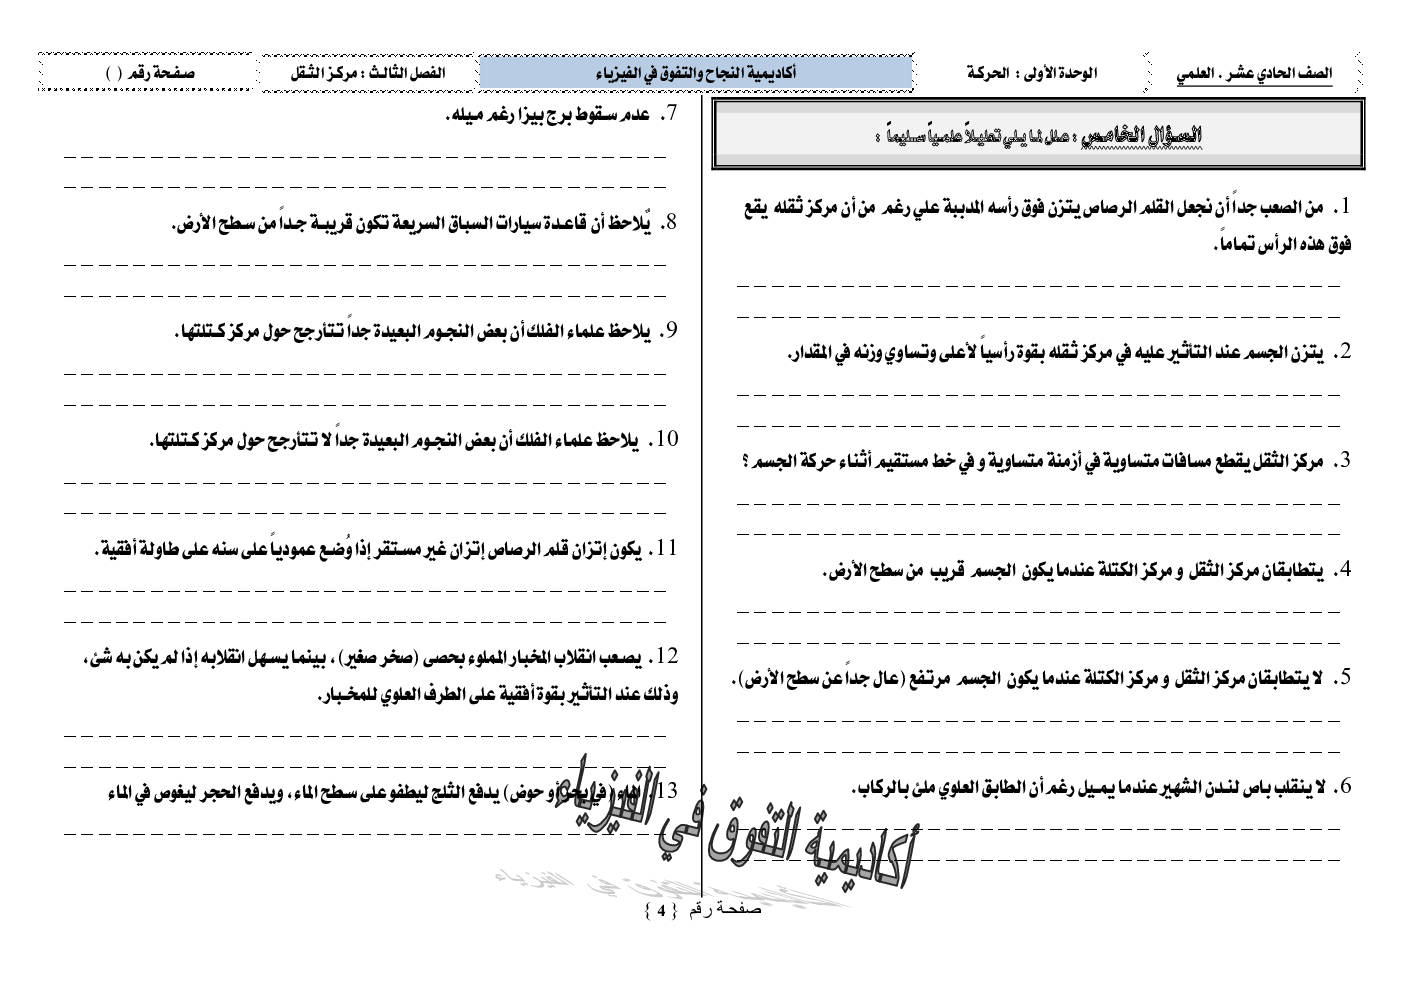 الصف الحادي عشر . العلمي
الوحدة الأولى : الحركة
أكاديمية النجاح والتفوق في الفيزياء
الفصل الثالث : مركز الثقل
صفحة رقم ( )
السؤال الخامس : علل لما يلي تعليلاً علمياً سليماً :
1. من الصعب جداً أن نجعل القلم الرصاص يتزن فوق رأسه المدببة علي رغم من أن مركز ثقله يقع
فوق هذه الرأس تماماً.
2. يتزن الجسم عند التأثير عليه في مركز ثقله بقوة رأسياً لأعلى وتساوي وزنه في المقدار.
3. مركز الثقل يقطع مسافات متساوية في أزمنة متساوية و في خط مستقيم أثناء حركة الجسم؟
4. يتطابقان مركز الثقل و مركز الكتلة عندما يكون الجسم قريب من سطح الأرض.
5. لا يتطابقان مركز الثقل و مركز الكتلة عندما يكون الجسم مرتفع (عال جداً عن سطح الأرض).
6. لا ينقلب باص لندن الشهير عندما يميل رغم أن الطابق العلوي ملئ بالركاب.
7. عدم سقوط برج بيزا رغم ميله.
8. يُلاحظ أن قاعدة سيارات السباق السريعة تكون قريبة جداً من سطح الأرض.
9. يلاحظ علماء الفلك أن بعض النجوم البعيدة جداً تتأرجح حول مركز كتلتها.
10. يلاحظ علماء الفلك أن بعض النجوم البعيدة جداً لا تتأرجح حول مركز كتلتها.
11. يكون إتزان قلم الرصاص إتزان غير مستقر إذا وُضع عمودياً على سنه على طاولة أفقية.
12. يصعب انقلاب المخبار المملوء بحصى (صخر صغير) ، بينما يسهل انقلابه إذا لم يكن به شئ،
وذلك عند التأثير بقوة أفقية على الطرف العلوي للمخبار.
13. الماء (في بحر أو حوض) يدفع الثلج ليطفو على سطح الماء، ويدفع الحجر ليغوص في الماء
أكاديمية التفوق في الفيزياء
صفحة رقم { 4 }